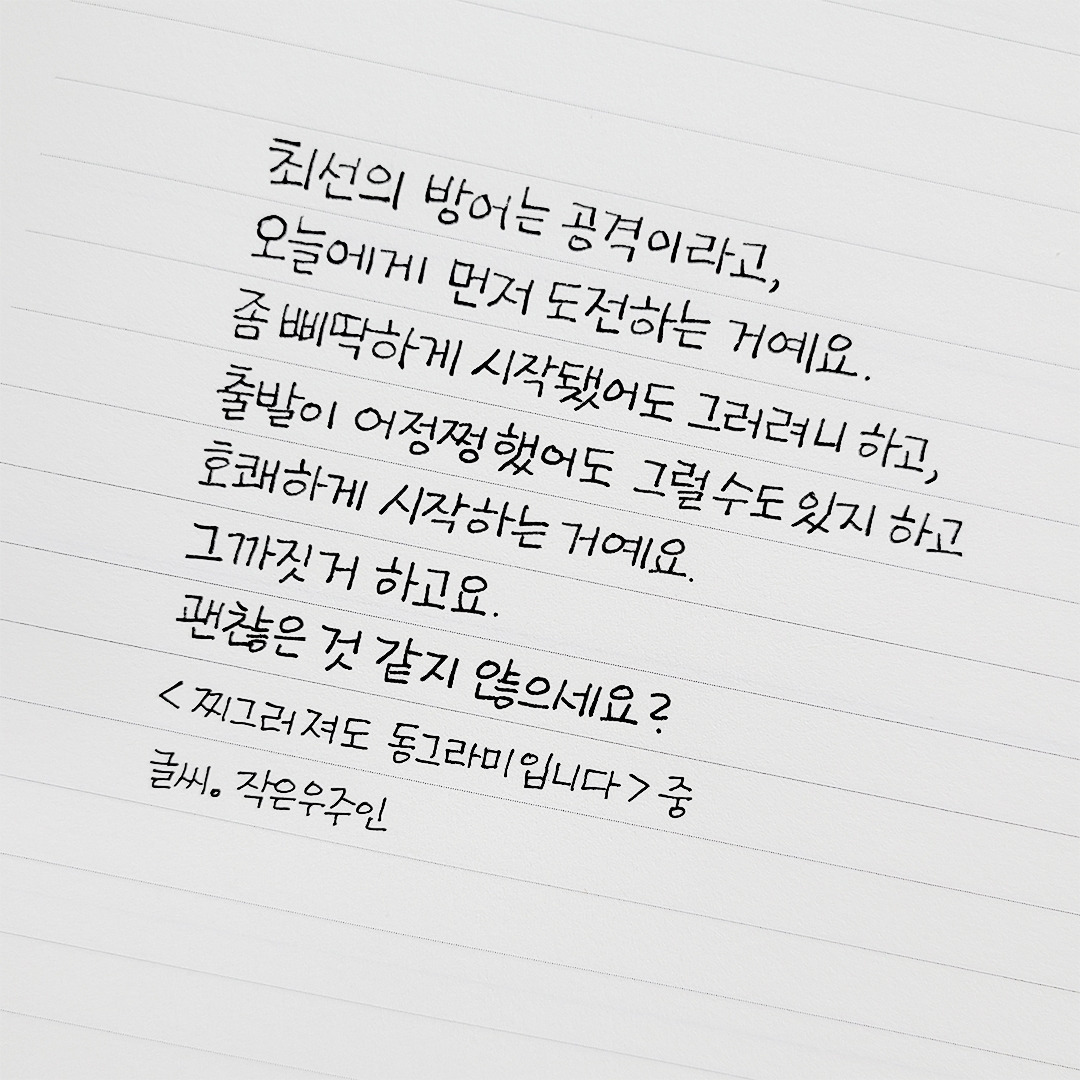 최선의 방어는 공격이라고,
오늘에게 먼저 도전하는 거예요.
좀 삐딱하게 시작됐어도 그러려니 하고,
출발이 어정쩡했어도 그럴 수도 있지 하고
호쾌하게 시작하는 거예요.
그까짓거 하고요.
괜찮은 것 같지 않으세요?
<찌그러져도 동그라미입니다> 중
글씨. 작은우주인